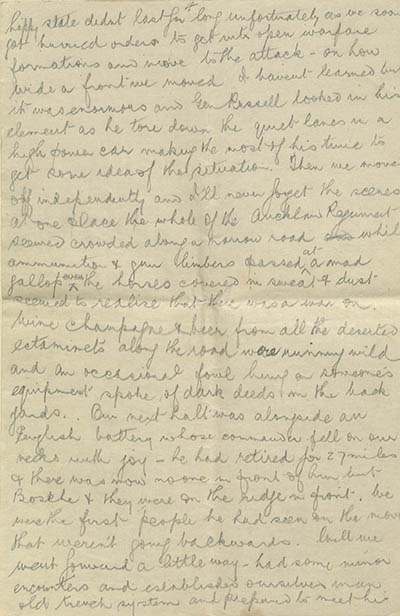 happy state didnt last for long unfortunately as we soon
got hurried orders to get into open warfare
formations and move to the attack – on how
wide a front we moved I havent learned but
it was enormous and Gen Russell looked in his
element as he tore down the quiet lanes in a
high power car making the most of his time to
get some idea of the situation. Then we moved
off independently and I'll never forget the scenes
at one place the whole of the Auckland Regiment
seemed crowded along a narrow road while
ammunition & gun limbers passed at a mad
gallop even the horses covered in sweat & dust
seemed to realise that there was a war on.
Wine Champagne & beer from all the deserted
estaminets along the road were running wild
and an occasional fowl hung on someone's
equipment spoke of dark deeds in the back
yards.. Our next halt was alongside an
English battery whose commander fell on our
necks with joy – he had retired for 27 miles
& there was now no one in front of him but
Bosche & they were on the ridge in front. We
were the first people he had seen on the move
that weren't going backwards. Well we
went forward a little way – had some minor
encounters and established ourselves in an
old trench system and prepared to meet his